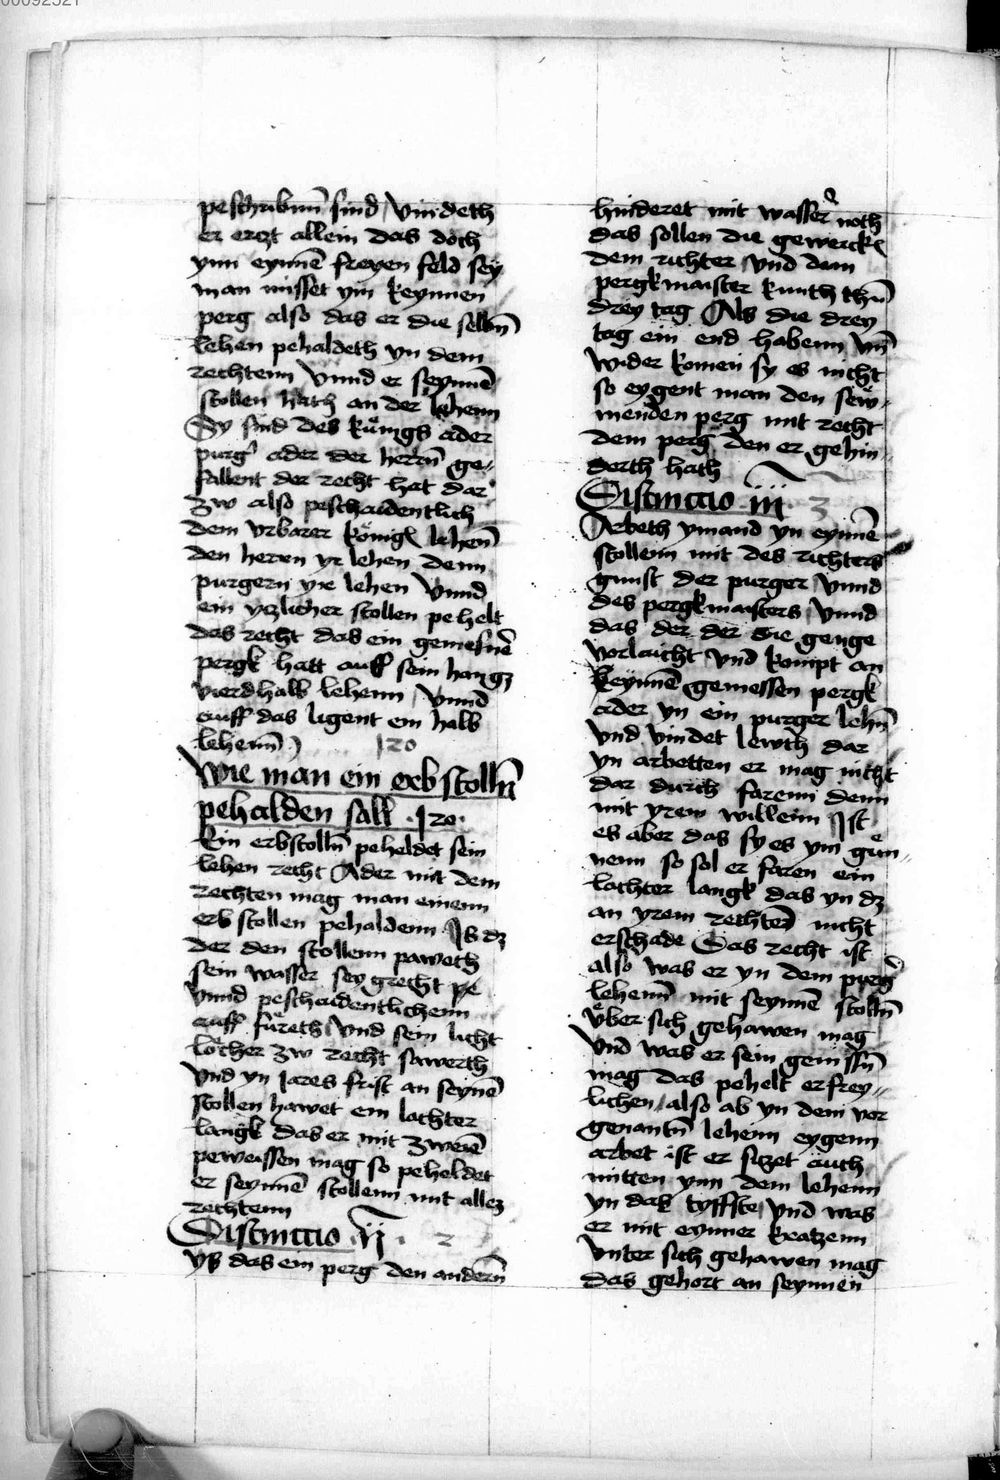 00092521
peschribenn̄ sind Vindeth
er erczt allein das doch
ynn eynnē freyen feld sey
man misset ym keynnen
perg also das er die selbn̄
lehen pehaldeth yn dem
rechtenn Vnnd er seynnē
stollen hath an der lehenn
Sy sind des kúnigs ader
purg̉ ader der herrn̄ ge-
fallent der recht hat dar
zw also peschaidentlich
dem vrborer kónigs lehen̄
den herren yr lehen denn
purgern yre lehen Vnnd
ein yczlicher stollen pehelt
das recht das ein gemesnē
pergk hatt auff sein hangz
vierdhalb lehenn Vnnd
auff das ligent ein halb
lehenn̄
120
Wie man ein erbstolln̄
pehalden sall · 120 ·
Ein erbstolln̄ peheldet sein
lehen recht Ader mit dem
rechten mag man einenn
erbstollen pehaldenn Is dz
der den stollenn paweth
sein wasser sey grecht pe
Vnnd peschaidentlichenn
auff fúreth Vnd sein licht
lócher zw recht sawerth
Vnd yn Jares frist an seynē
stollen hawet ein lachter
langk das er mit zweiē
peweissen mag so peheldet
er seynnē stollenn mit allez
rechtenn
Distinctio ij · 2
Ys das ein perg den andern̄
hinderet mit wasser noth
das sollen die gewercken
dem richter Vnd dem
pergkmaister kunth thū
drey tag Als die drey
tag ein end habenn Vn̄
wider komen sy es nicht
so eygent man den sew-
menden perg mit recht
dem perg den er gehin-
derth hath
Distinctio iij · 3
Arbeth ymand yn eynnē
stollenn mit des richters
gunst der purger Vnnd
des pergkmaisters Vnnd
das der der die genge
vorlaicht Vnd kompt an
keynnē gemessen pergk
ader yn ein purger lehn̄
Vnd Vindet lewth dar
yn arbetten er mag nicht
dar durch farenn denn
mit yrem willenn Ist
es aber das sy es ym gún-
nenn so sol er faren ein
lachter langk das yn dz
an yrem rechten̄ nicht
erschade Das recht ist
also was er yn dem purg̉
lehenn̄ mit seynnē stolln̄
vber sich gehawen mag
Vnd was er sein genissn̄
mag das pehelt er frey-
lichen also ab yn dem vor
genantn̄ lehenn eygenn
arbet ist er siczet auch
mitten ynn dem lehenn
yn das tyffste Vnd was
er mit eynner kraczenn
Vnter sich gehawen mag
das gehort an seynnen